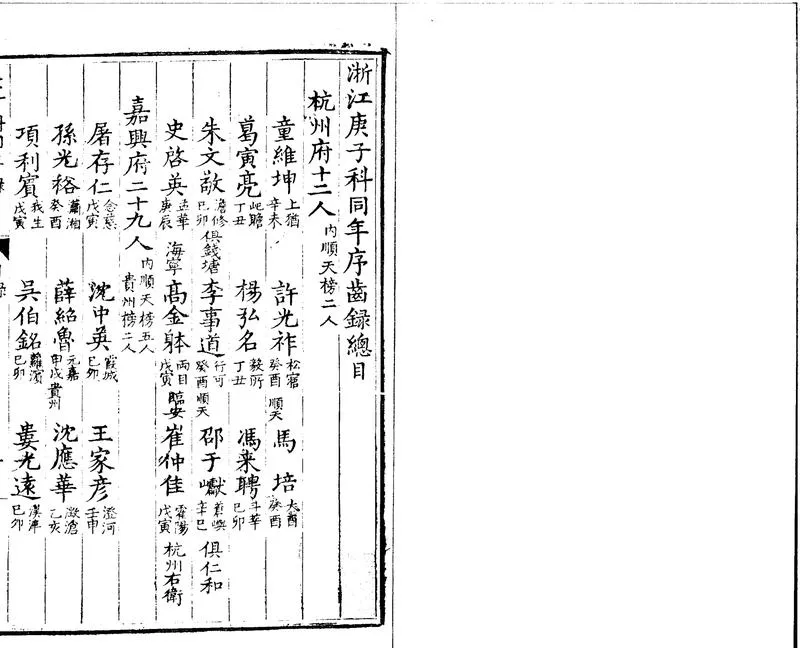 浙江庚子科同年序齒錄總目
杭州府十二人 内順天榜二人
童維坤 上猶 辛未 許光祚 松窩 癸酉 順天 馬培 大酉 癸酉
葛寅亮 屺瞻 丁丑 楊弘名 毅所 丁丑 馮來聘 斗華 己卯
朱文敬 澹修 己卯 俱錢塘 李事道 行可 癸酉 順天 邵于巘 蒼嶼 辛巳 俱仁和
史啓英 孟華 庚辰 海寧 髙金躰 兩目 戊寅 臨安 崔仲佳 霍陽 戊寅 杭州右衛
嘉興府二十九人 内順天榜五人 貴州榜二人
屠存仁 念慈 戊寅 沈中英 霞城 己卯 王家彦 澄河 壬申
孫光裕 瀟湘 癸酉 薛紹魯 元嘉 甲戌 貴州 沈應華 澂滄 乙亥
項利賓 我生 戊寅 吳伯銘 蘿濱 己卯 婁光遠 漢津 己卯